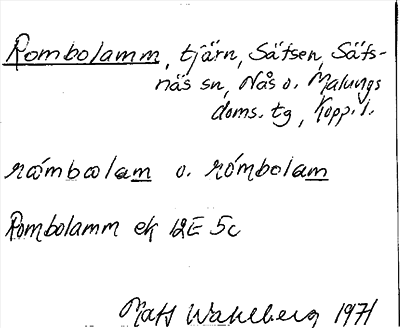 Rombolamm, tjärn, Säfsen, Säfs-
näs sn, Nås o. Malungs
doms. tg, Kopp. l.
råmbωlam o. rómbolam
Rombolamm ek 12E 5c
Mats Wahlberg 1971